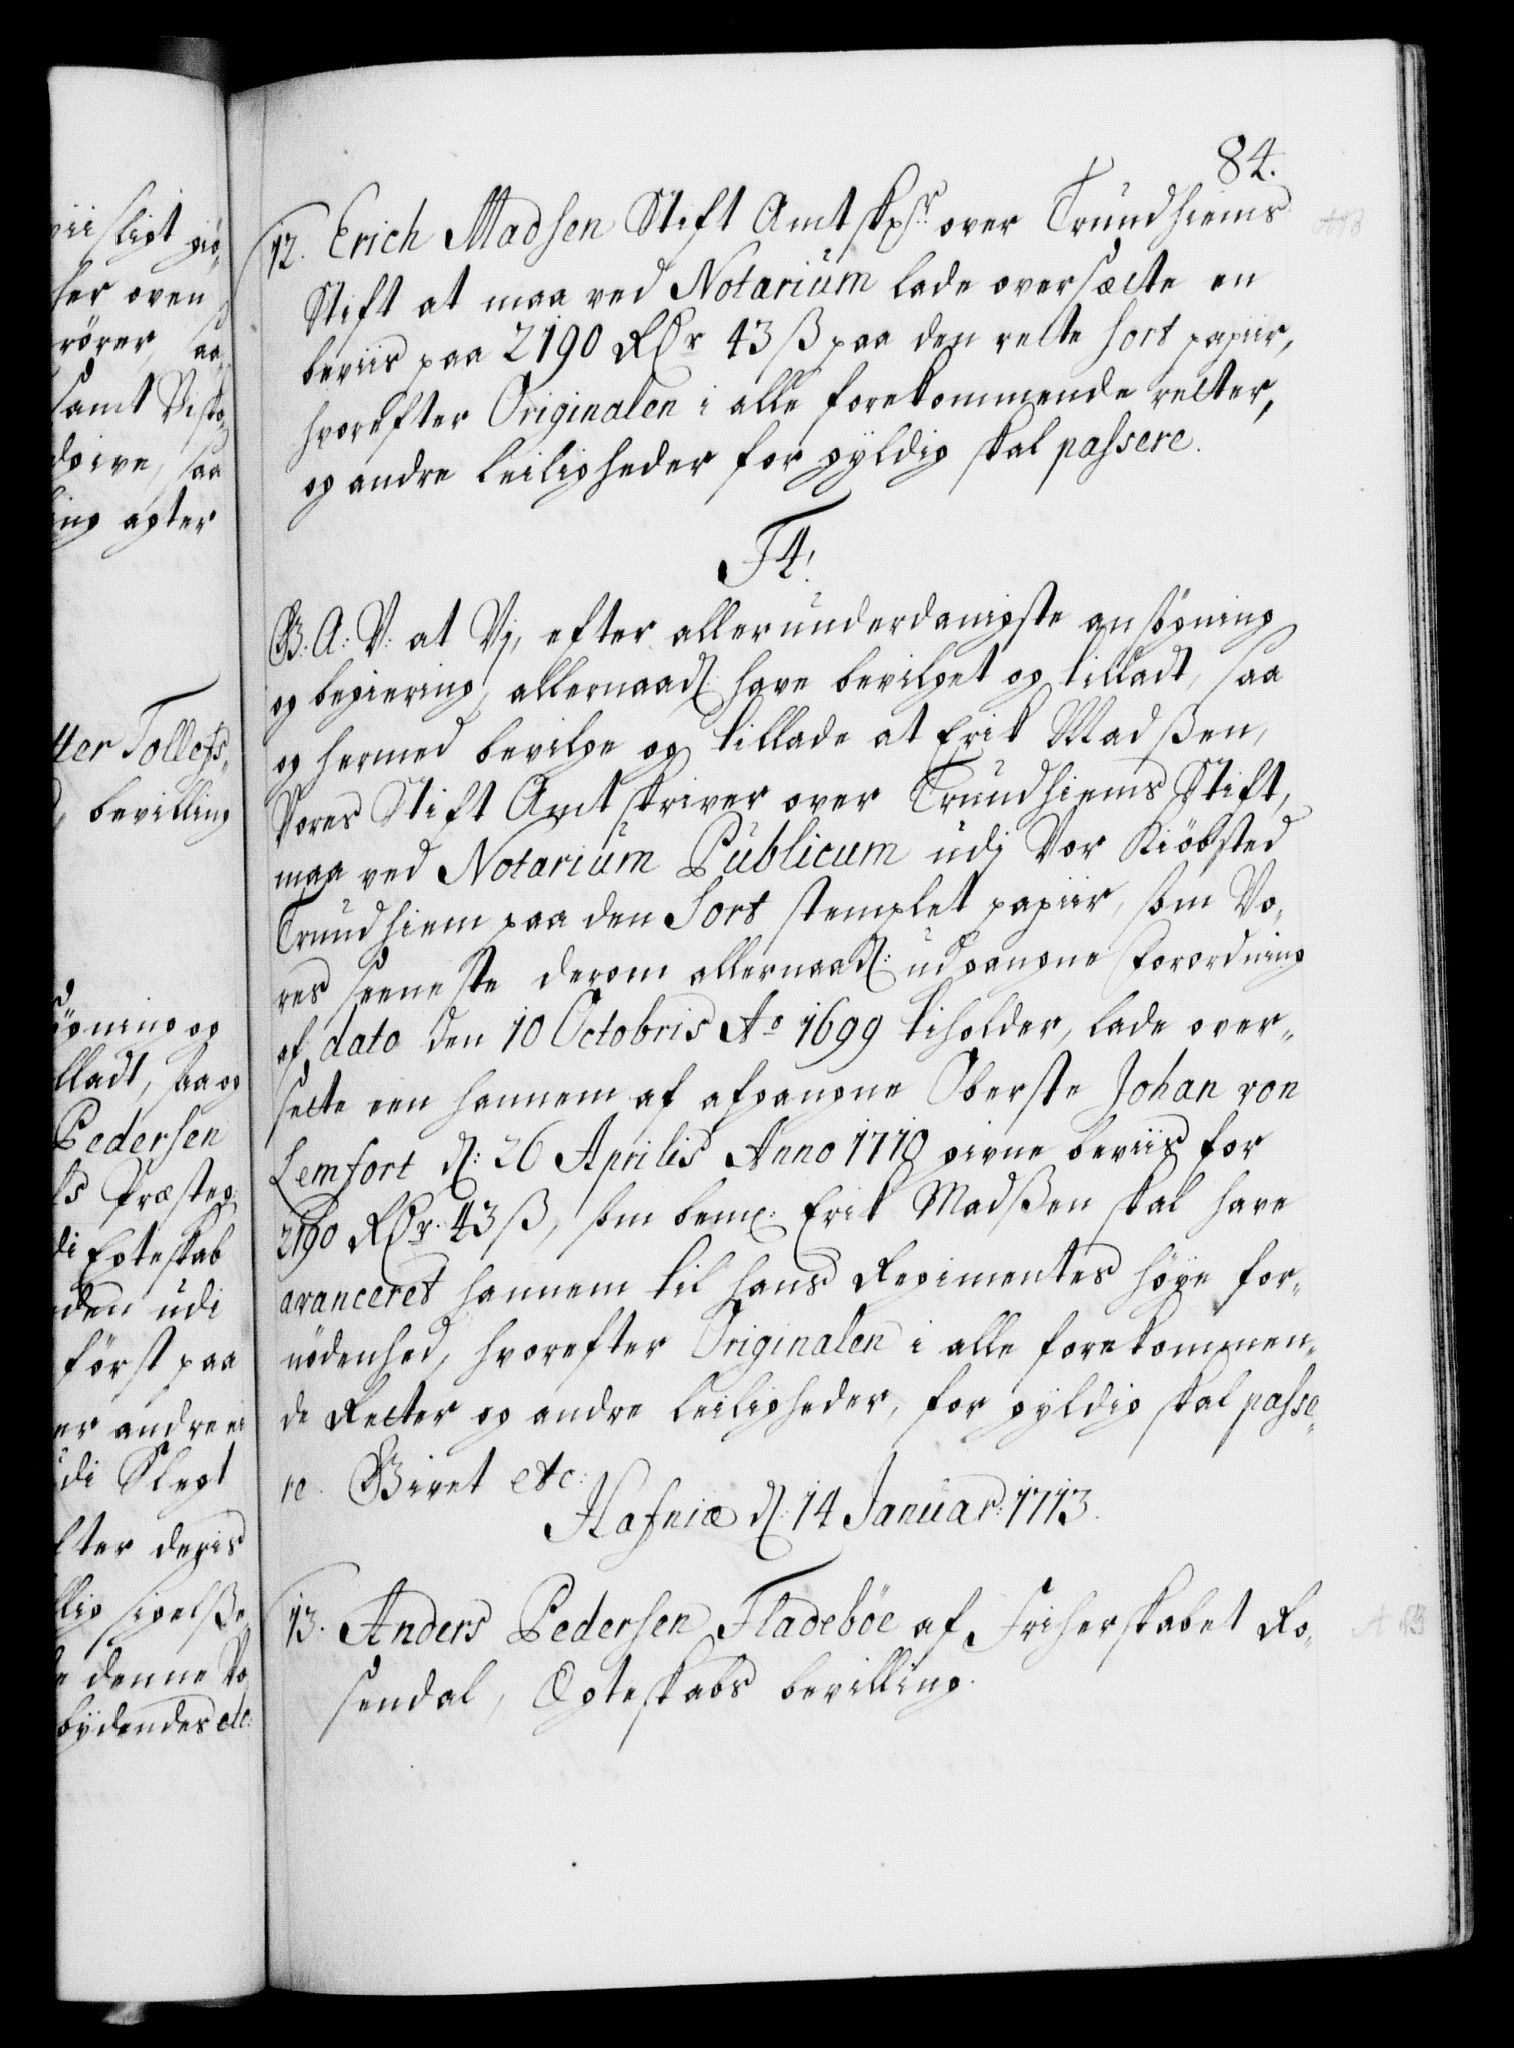 84.
12. Erich Madsen Stift Amtskr. over Trundhiems
Stift at maa ved Notarium lade oversætte en
beviis paa 2190 Rdr 43 ß paa den rette sort papiir,
hvorefter Originalen i alle forekommende retter,
og andre leiligheder for gyldig skal passere.
F4!
G. A: V: at Vj, efter allerunderdanigste ansögning
og begiering, allernaad: have bevilget og tilladt, saa
og hermed bevilge og tillade at Erik Madßen,
Vores Stift Amtskriver over Trundhiems Stift,
maa ved Notarium Publicum udj Vor Kiöbsted
Trundhiem paa den Sort stemplet papiir, som Vo¸
res seeneste derom allernaad: udgangne Forordning
af dato den 10 Octobris Ao 1699 tiholder, lade over¸
sette een hannem af afgangne Oberste Johan von
Lemfort d: 26 Aprilis Anno 1710 givne beviis for
2190 Rdr. 43 ß, som bem: Erik Madßen skal have
avanceret hannem til hans Regimentes höye for¸
nödenhed, hvorefter Originalen i alle forekommen¸
de Retter og andre leiligheder, for gyldig skal passe¸
re. Givet etc:
Hafniæ d: 14 Januar: 1713.
13. Anders Pedersen Fladeböe af Friherskabet Ro¸
sendal, Egteskabs bevilling.
her oven
rörer, saa
samt
dgive, saa
ing agter
bevilling
ögning og
lladt, saa og
Pedersen
di Egteskab
den udi
först paa
er andre ei
di Slegt
denne Vo
bydendes etc: